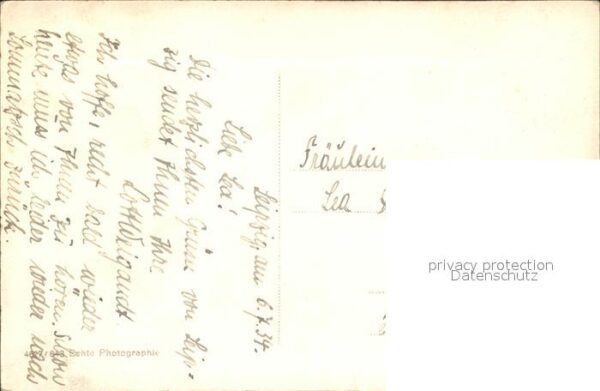 Leipzig am 6.7.34.
Liebe Lea!
Die herzlichsten Grüße von Leip-
zig sendet Ihnen Ihre
Lott Weigandt
Ich hoffe, recht bald wieder
etwas von Ihnen zu hören. Schon
heute muss ich leider wieder nach
Lommatzsch zurück.
Fräulein
Lea
Echte Photographie
privacy protection
Datenschutz